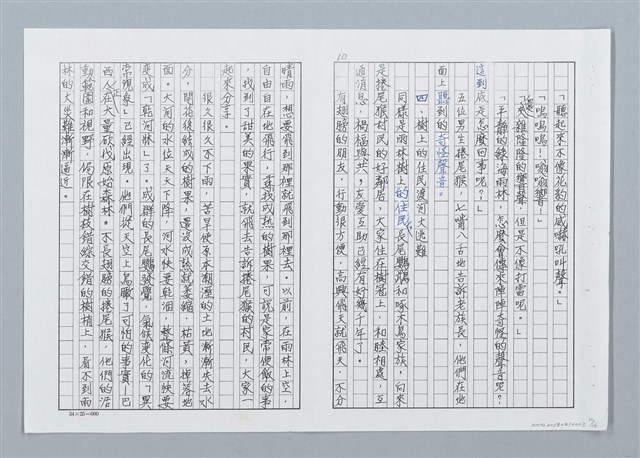 10
「聽起來不像花豹的威嚇吼叫聲？」
「嗚嗚嗚！嗡嗡嗡！」
「轟隆隆的響聲，但是不像打雷呢。」
「平靜的綠海雨林，怎麼會傳來陣陣奇怪的聲音呢？
這到底是怎麼回事呢？」
五位男生捲尾猴，七嘴八舌地告訴老族長，他們在地
面上聽到的奇怪聲音。
四、樹上的住民渡河大逃難
同樣是雨林樹上的住民，長尾鸚鵡和啄木鳥家族，向來
是捲尾猴村民的好鄰居，大家住在樹層上，和睦相處，互
通消息，禍福與共，友愛互助已經有好幾千年了。
有翅膀的朋友，行動很方便，高興飛天就飛天，不分
晴雨，想要飛到那裡就飛到那裡去。以前，在雨林上空，
自由自在地飛行，尋找成熟的樹果，可說是家常便飯的事
，找到了甜美的果實，就飛去告訴捲尾猴的村民，大家一
起來分享。
很久很久不下雨，苦旱使原本潮溼的土地漸漸失去水
分，開花後乾或的還沒成熟就萎縮，枯黃，掉落地
面。大河的水位天天下降，河水快要乾涸，整條河流快要
變成「乾河床」了。成群的長尾鸚鵡發覺，氣候變化的「異
常現象」已經出現。他們從天空上鳥瞰了可怕的事實－巴
西人正在大量砍伐原始森林。不長翅膀的捲尾猴，他們的活
動範圍和視野，侷限在樹枝錯綜交錯的樹梢上，看不到雨
林的大災難漸漸逼近。
24×25=600